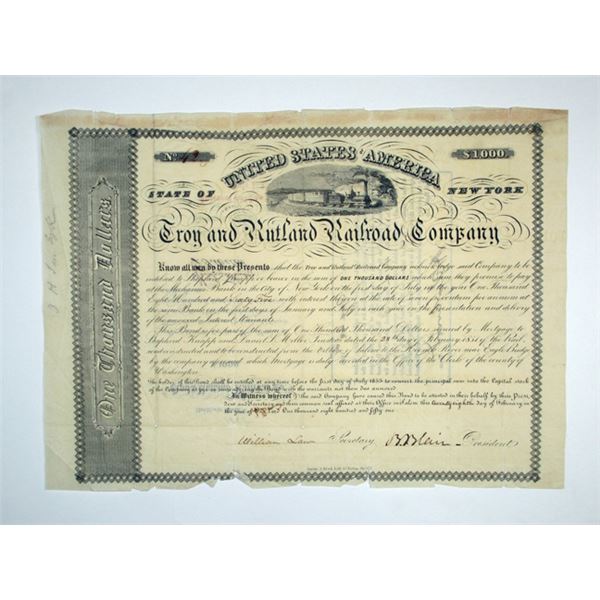 One Thousand Dollars
No. 42
UNITED STATES OF AMERICA
$1000.
STATE OF NEW YORK
Troy and Rutland Railroad Company
Know all men by these Presents that the Troy and Rutland Railroad Company acknowledge said Company to be
indebted to Shepherd Knapp or bearer in the sum of ONE THOUSAND DOLLARS which sum they promise to pay
at the Mechanics Bank in the City of New York on the first day of July in the year One Thousand
Eight Hundred and Sixty Five with interest thereon at the rate of seven per centum per annum at the
same Bank on the first days of January and July in each year on the presentation and delivery
of the annexed Interest Warrants.
This Bond is for part of the sum of One Hundred Thousand Dollars secured by Mortgage to
Shepherd Knapp and Daniel S. Miller Trustees dated the 28th day of February 1851 of the Rail
road constructed and to be constructed from the Village of Salem to the Hoosick River near Eagle Bridge
by the company aforesaid which Mortgage is duly recorded in the Office of the Clerk of the county of
Washington.
The holder of this Bond shall be entitled at any time before the first day of July 1855 to convert the principal sum into the Capital stock
of the Company at par on surrendering the Bond with the warrants not then due annexed.
In Witness whereof the said Company have caused this Bond to be attested in their behalf by their Presi
dent and Secretary and their common seal affixed at their Office in Salem this twenty eighth day of February in
the year of our Lord One thousand eight hundred and fifty one
William Law Secretary B Blair President